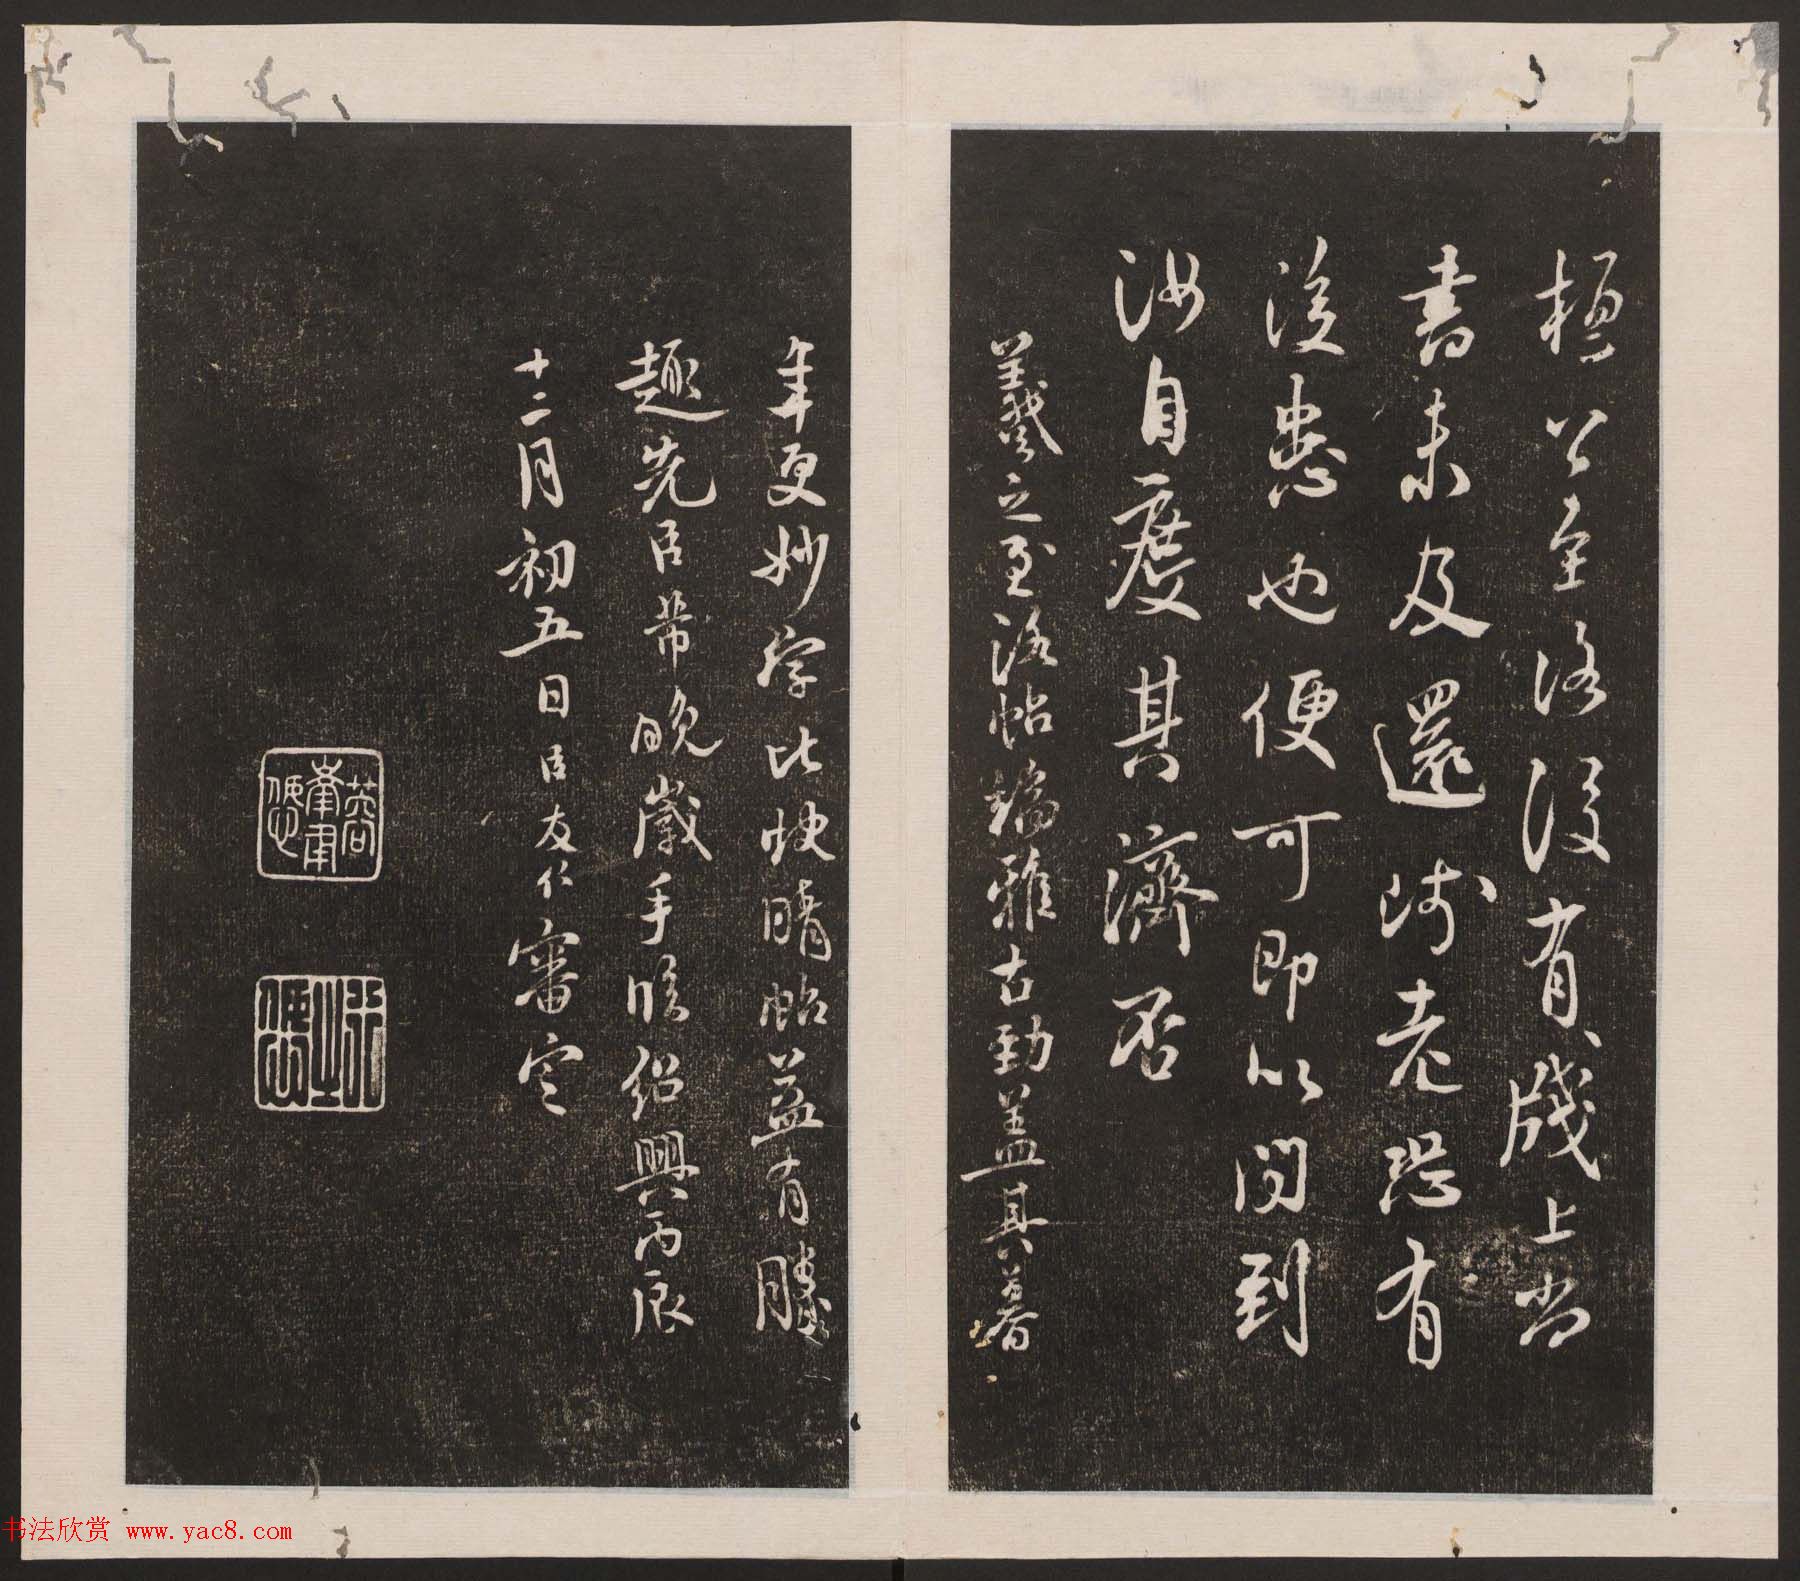 桓公至洛後有牋上尚
書未及還老恐有
後患也便可即以問到
汝自度其濟否
羲之至洛帖端雅古勁蓋其暮
年更妙字比快晴帖益有勝
趣先臣芾晚歲手臨紹興丙辰
十二月初五日臣友仁審定
书法欣赏 www.yac8.com